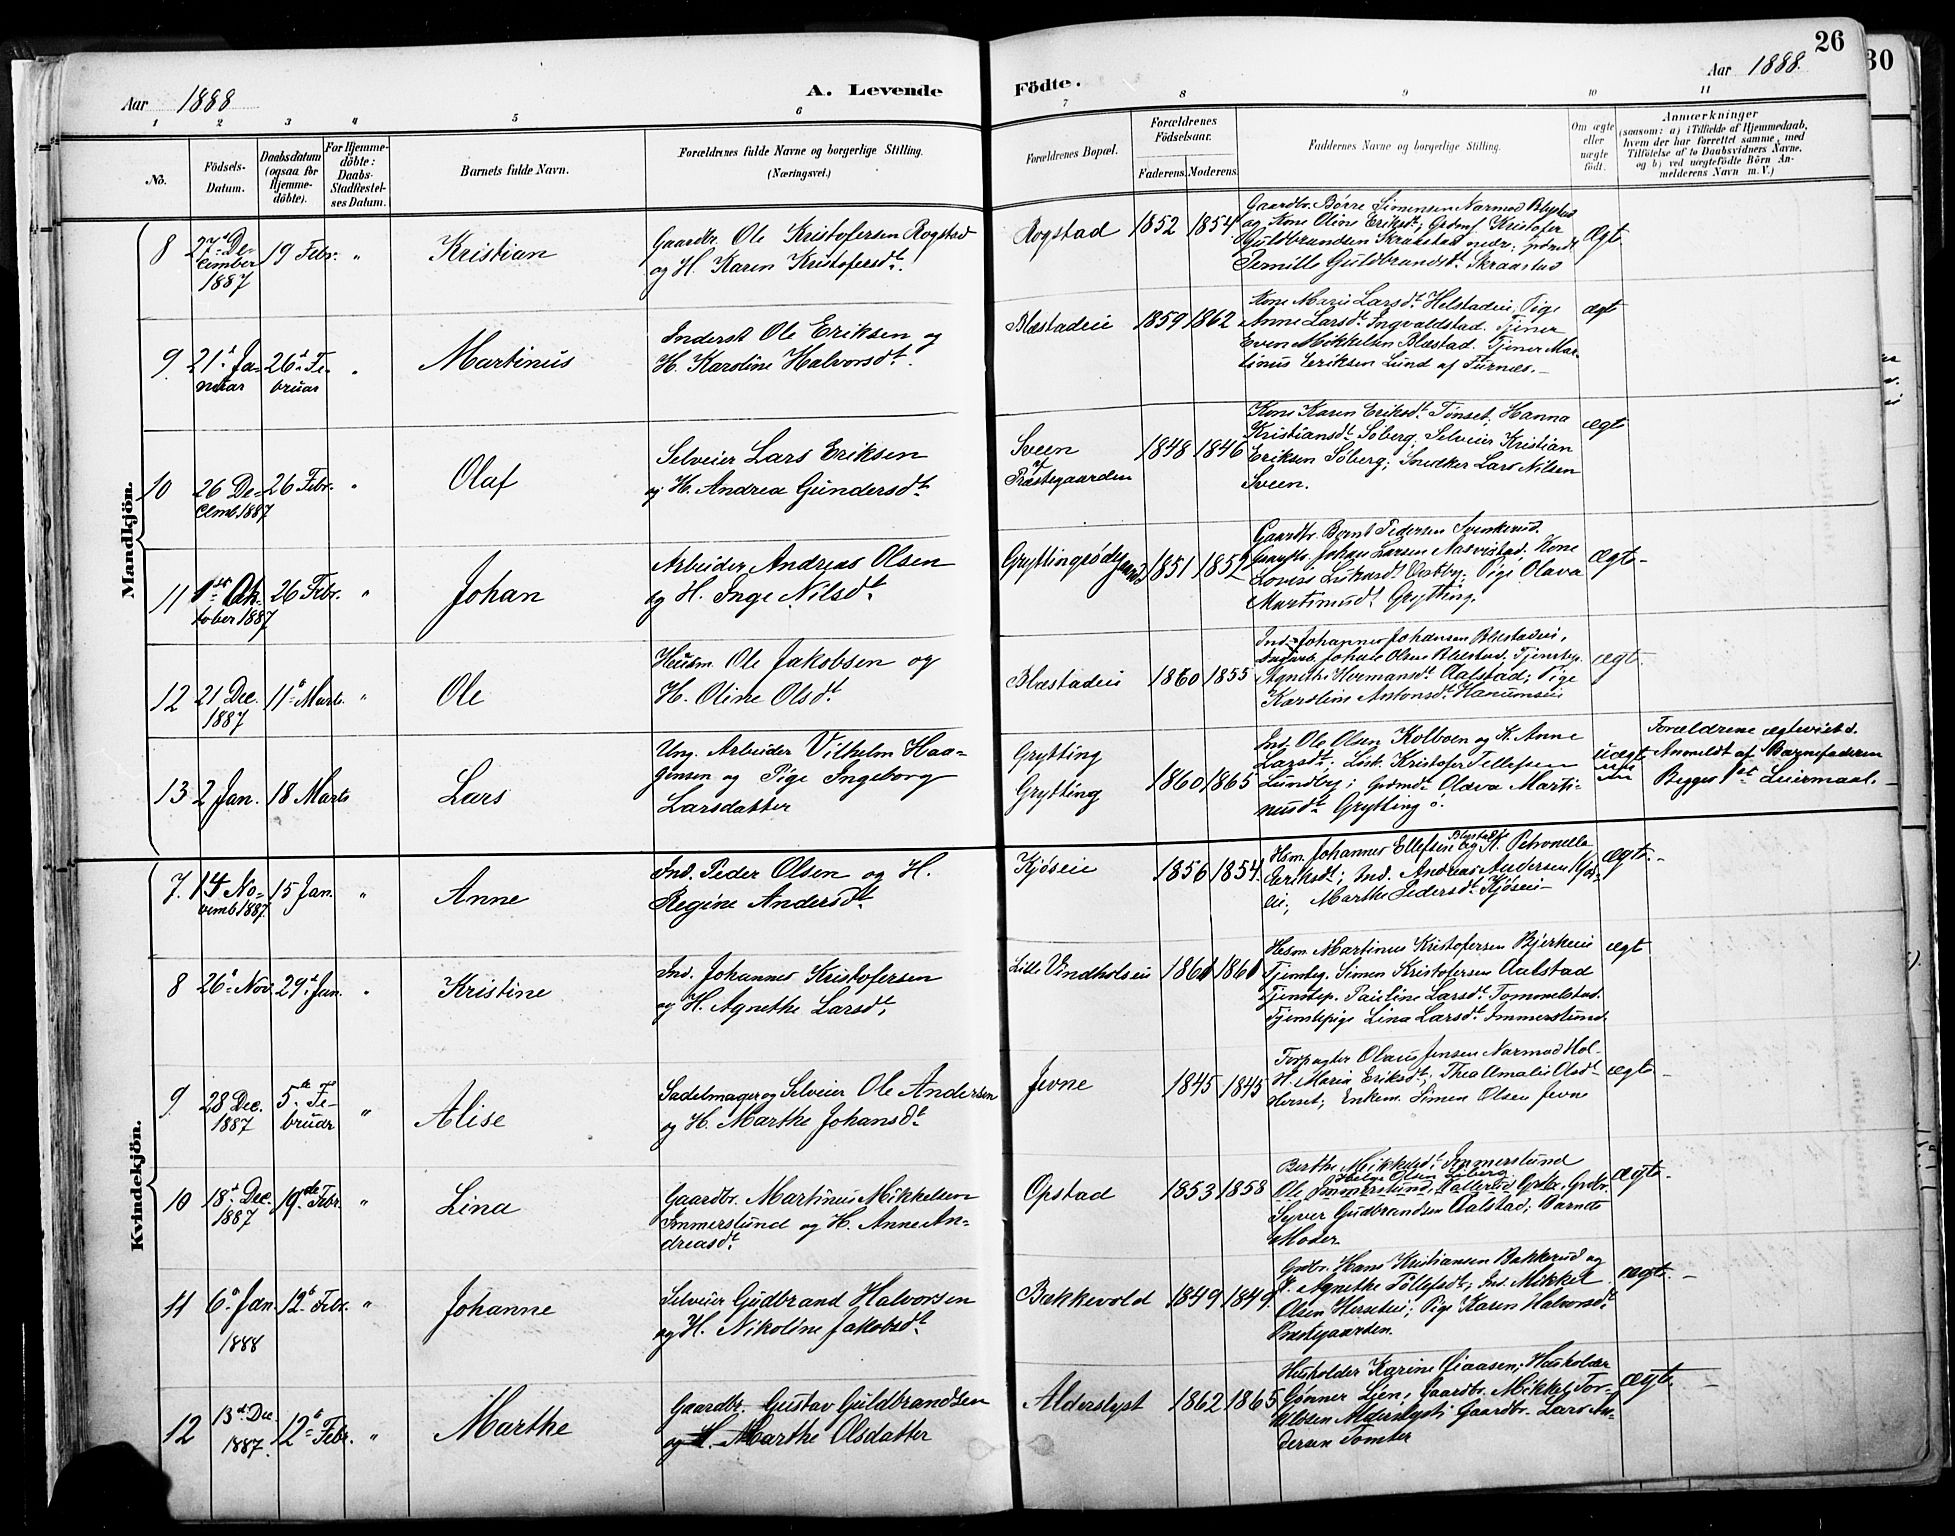 26
30
Aar 1888
A. Levende
Födte.
Aar 1888.
1 2 3 4 5 6 7 8 9 10 11
No.
Födsels-
Datum.
Daabsdatum
(ogsaa for
Hjemme-
döbte).
For Hjemme-
döbte:
Daabs-
Stadfæstel-
ses Datum.
Barnets fulde Navn.
Forældrenes fulde Navne og borgerlige Stilling.
(Næringsvei.)
Forældrenes Bopæl.
Forældrenes
Födselsaar.
Faderens. Moderens.
Faddernes Navne og borgerlige Stilling.
Om ægte
eller
uægte
født.
Anmærkninger
(saasom: a) i Tilfælde af Hjemmedaab,
hvem der har forrettet samme, med
Tilföielse af to Daabsvidners Navne,
og b) ved uægtefödte Börn An-
melderens Navn m. V.)
Mandkjön.
8 27 De-
cember
1887
19 Febr. "
Kristian
Gaardbr. Ole Kristofersen Rogstad
og H. Karen Kristofersdt.
Rogstad 1852 1854
Gaardbr. Børre Simensen Narmo
og Kone Oline Eriksdt; Kristofer
Guldbrandsen Skraastad
Pernille Guldbrandsdt. Skraastad
Ægte
9. 21 Ja-
nuar
26 Fe-
bruar "
Martinus
Inderst Ole Eriksen og
H. Karoline Halvorsdt.
Blæstadeie 1859 1862
Kone Marie Larsdt. Helstadeie; Pige
Anne Larsdt. Ingvaldstad. Tjener
Even Mikkelsen Blæstad. Tjener Mar-
tinus Eriksen Lund af Furnæs.
ægt
10 26 De-
cemb. 1887
26 Febr. "
Olaf
Selveier Lars Eriksen
og H. Andrea Gundersdt.
Sveen
Præstegaarden 1848 1846
Kone Karen Eriksdt. Tønset; Hanna
Kristiansdt. Söberg; Selveier Kristian
Eriksen Söberg; Snedker Lars Nilsen
Sveen.
ægte
11 1ste Ok-
tober 1887
26 Febr. "
Johan
Arbeider Andreas Olsen
og H. Inge Nilsdt.
1851 1852
Gaardbr. Bernt Pedersen
Gaardbr. Johan Larsen Kone
Lovise Pige Olava
Martinusdt. Grytting.
Ægte
12 21 Dec.
1887
11 Marts "
Ole
Husm. Ole Jakobsen og
H. Oline Olsdt.
Blæstadeie 1860 1855
Ind. Johannes Johansen Blæstadeie,
Johan Olsen Blæstad. Tjenstep.
Agnethe Hermansdt. Aalstad; Pige
Karoline Antonsdt. Hanumseie
ægt
13 2 Jan. 18 Marts
Lars
Ung. Arbeider Vilhelm Haa-
gensen og Pige Ingeborg
Larsdatter
Grytting
Grytting 1860 1865
Ind. Ole Olsen Kolboen og K. Anne
Larsdt; Kristofer Tellefsen
Lundby; Olava Marti-
nusdt. Grytting
uægt
Forældrene
Anmeldt af Barnefaderen
Begges 1et Leiermaal.
Kvindekjön.
7. 14 No-
vemb. 1887
15 Jan. "
Anne
Ind. Peder Olsen og H.
Regine Andersdt.
Kjöseie 1856 1854.
Hsm. Johannes Ellefsen og K. Petronella
Eriksdt; Ind. Andreas Andersen
eie; Marthe Pedersdt. Kjöseie
ægte.
8 26 Nov. 29 Jan. "
Kristine
Ind. Johannes Kristofersen
og H. Agnethe Larsdt,
Lille Vindholseie 1861 1861
Husm Martinus Kristofersen Bjerkeeie
Tjenteg. Simen Kristofersen Aalstad
Tjenstep. Pauline Larsdt. Tommelstad.
Tjenstepige Lina Larsdt. Immerslund.
ægt
9. 28 Dec.
1887
5te Fe-
bruar "
Alise
Sadelmager og Selveier Ole Andersen
og H. Marthe Johansdt.
Jevne 1845 1845
Forpagter Olaus Jensen Narmo
H. Maria Eriksdt.; Thea Amalie Olsdt
Herset; Enkem. Simen Olsen Jevne
ægte
10 18 Dec.
1887
19de Febr. "
Lina
Gaardbr. Martinus Mikkelsen
Immerslund og H. Anne An-
dreasdt.
Opstad 1853 1858
Berthe Mikkelsdt. Immerslund
Helge Olsen Söberg
Ole Immerslund,
Syver Gudbrandsen Aalstad; Barnets
Moder.
Ægte.
11 6 Jan.
1888
12 Febr. "
Johanne
Selveier Gudbrand Halvorsen
og H. Nikoline Jakobsdt.
Bækkevold 1849 1849.
Grdbr. Hans Kristiansen Bakkerud og
K. Agnethe Tollefsdt; Ind. Mikkel
Olsen Herseteie; Pige Karen Halvorsdt.
Præstegaarden.
ægte.
12 13 Dec.
1887.
12 Febr. "
Marthe
Gaardbr. Gustav Guldbrandsen
og H. Marthe Olsdatter
Alderslyst 1862 1865
Husholder Karine Husholder
Gunner Lien; Gaardbr. Mikkel Tor-
kelsen Alderslyst; Gaardbr. Lars An-
dersen Tomter
Ægte.